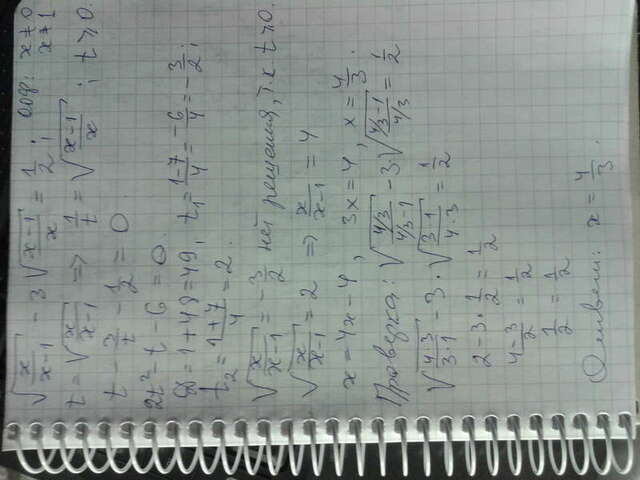 √(x/(x-1)) - 3√((x-1)/x) = 1/2; одз: x≠0
x≠1
t = √(x/(x-1)) => 1/t = √((x-1)/x); t ≥ 0.
t - 3/t - 1/2 = 0.
2t² - t - 6 = 0.
D = 1 + 48 = 49, t₁ = (1-7)/4 = -6/4 = -3/2;
t₂ = (1+7)/4 = 2.
√(x/(x-1)) = -3/2 нет решения, т.к t ≥ 0.
√(x/(x-1)) = 2 => x/(x-1) = 4
x = 4x - 4, 3x = 4, x = 4/3.
Проверка: √((4/3)/(4/3-1)) - 3·√((4/3-1)/(4/3)) = 1/2
√((4·3)/(3·1)) - 3·√((3·1)/(4·3)) = 1/2
2 - 3·1/2 = 1/2
(4-3)/2 = 1/2
1/2 = 1/2
Ответ: x = 4/3.